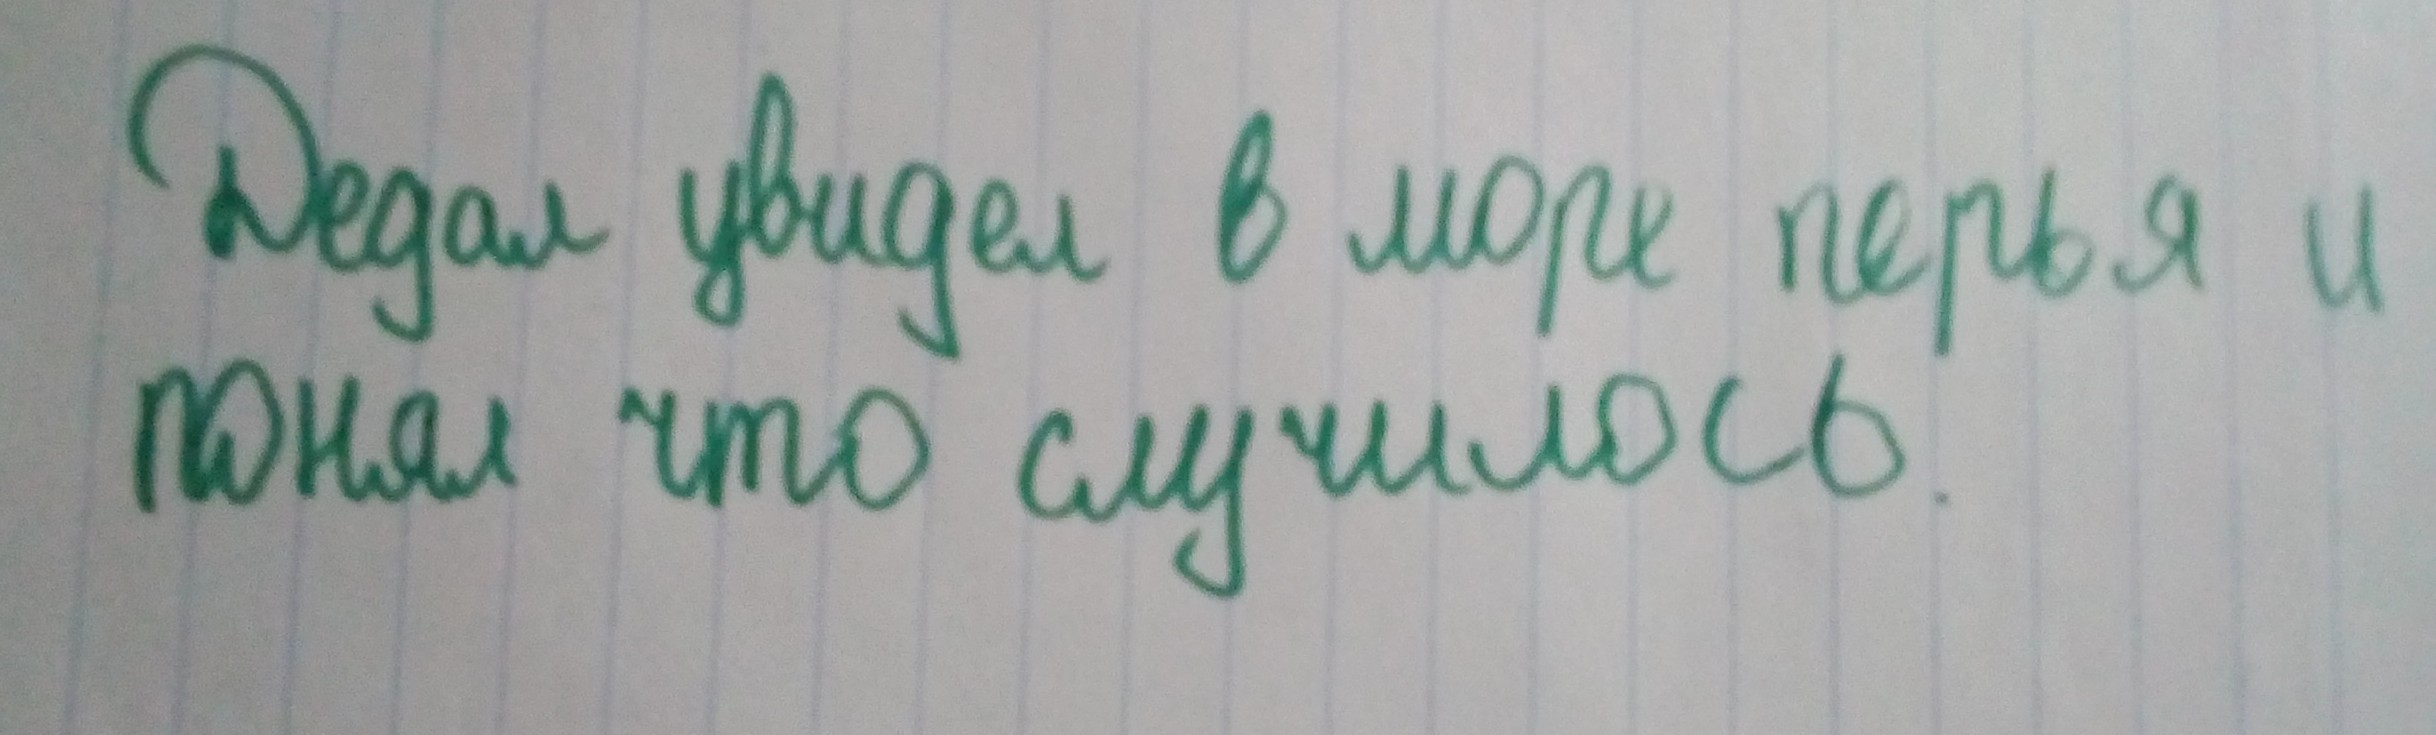 Дедал увидел в море перья и
понял что случилось.